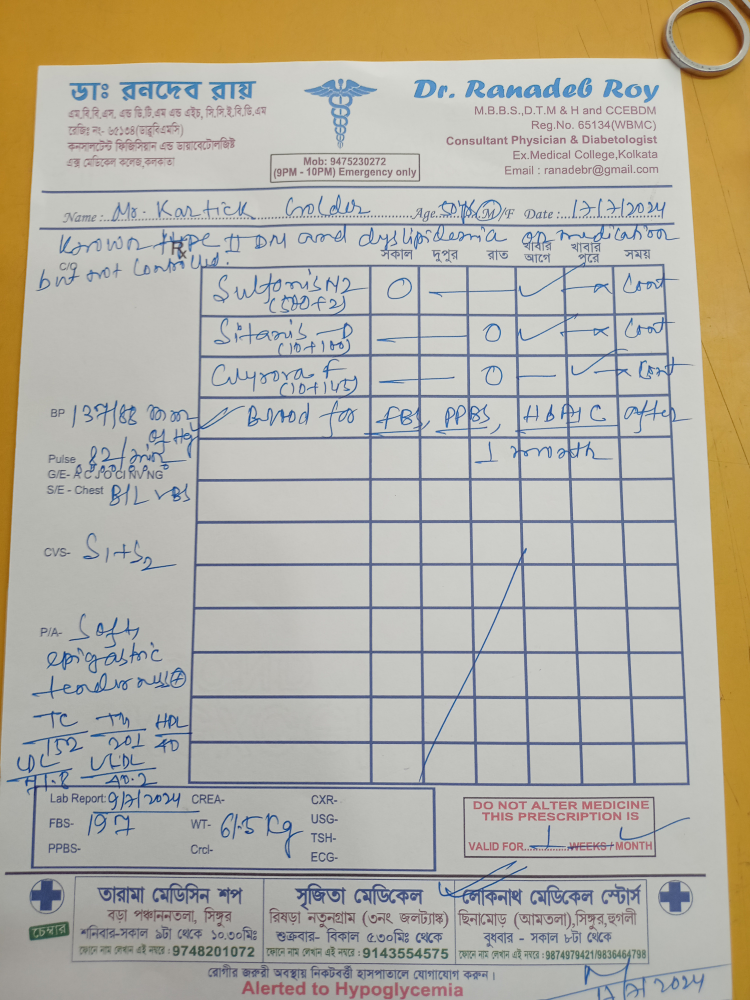 ডাঃ রনদেব রায়
এম.বি.বি.এস. এন্ড ডি.টি.এম এন্ড এইচ, সি.সি.ই.বি.ডি.এম
রেজিঃ নং- ৬৫১৩৪(ডাব্লুবিএমসি)
কনসালটেন্ট ফিজিসিয়ান এন্ড ডায়াবেটোলজিষ্ট
এক্স মেডিকেল কলেজ,কলকাতা
Mob: 9475230272
(9PM - 10PM) Emergency only
Dr. Ranadeb Roy
M.B.B.S.,D.T.M & H and CCEBDM
Reg.No. 65134(WBMC)
Consultant Physician & Diabetologist
Ex.Medical College,Kolkata
Email : ranadebr@gmail.com
Name : Mr. Kartick Golder Age 50 yrs M/F Date : 17/7/2024
Known Type II DM and dyslipidemia on medication
but not controlled.
C/O Rx
সকাল দুপুর রাত খাবার আগে খাবার পরে সময়
(500+2) O — — ✓ — x Cont
(10+100) — — O ✓ — x Cont
(10+145) — — O — ✓ x Cont
✓ Blood for FBS, PPBS, HBA1C after
1 month
BP 137/88 mm of Hg
Pulse 82/min
G/E- A C J O CI NV NG
S/E - Chest B/L VBS
CVS- S1+S2
P/A- Soft,
epigastric
tenderness +
TC 152 TG 201 HDL 40
LDL 71.8 VLDL 40.2
Lab Report: 9/7/2024 CREA- CXR-
FBS- 197 WT- 61.5 Kg USG-
TSH-
PPBS- Crcl- ECG-
DO NOT ALTER MEDICINE
THIS PRESCRIPTION IS
VALID FOR 1 WEEKS / MONTH
চেম্বার
তারামা মেডিসিন শপ
বড়া পঞ্চাননতলা, সিঙ্গুর
শনিবার-সকাল ৯টা থেকে ১০.৩০মিঃ
ফোনে নাম লেখান এই নম্বরে : 9748201072
সৃজিতা মেডিকেল
রিষড়া নতুনগ্রাম (৩নং জলট্যাঙ্ক)
শুক্রবার- বিকাল ৫.৩০মিঃ থেকে
ফোনে নাম লেখান এই নম্বরে : 9143554575
লোকনাথ মেডিকেল স্টোর্স
ছিনামোড় (আমতলা),সিঙ্গুর,হুগলী
বুধবার - সকাল ৮টা থেকে
ফোনে নাম লেখান এই নম্বরে :9874979421/9836464798
রোগীর জরুরী অবস্থায় নিকটবর্তী হাসপাতালে যোগাযোগ করুন।
Alerted to Hypoglycemia
17/7/2024